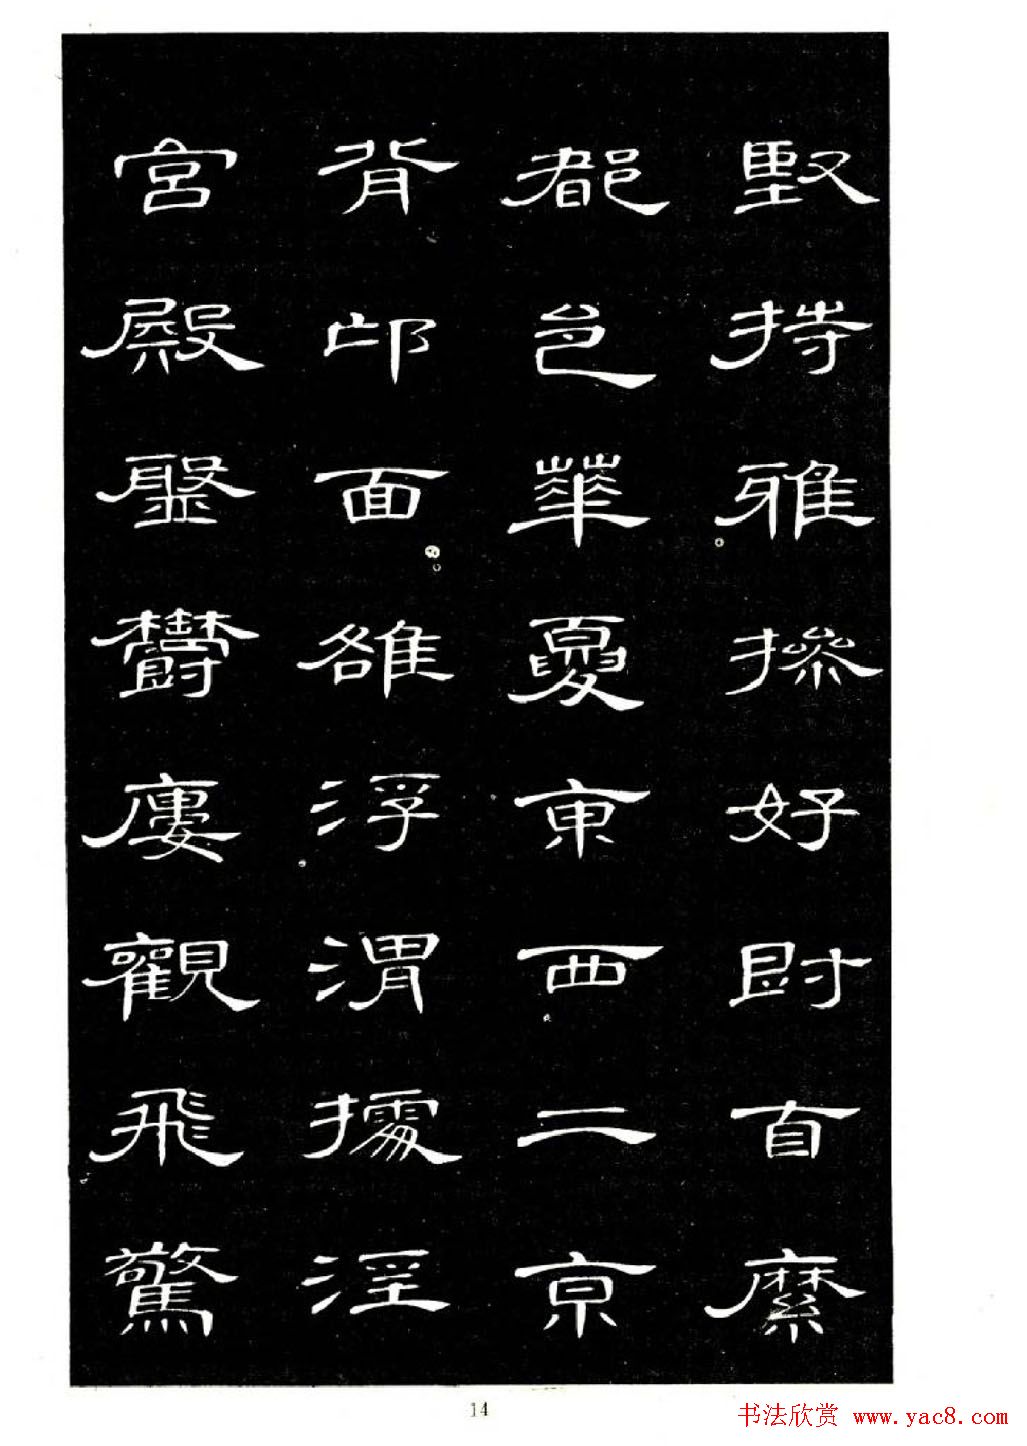 堅持雅操好爵自縻
都邑華夏東西二京
背邙面雒浮渭據涇
宮殿盤鬱廔觀飛驚
14
书法欣赏 www.yac8.com